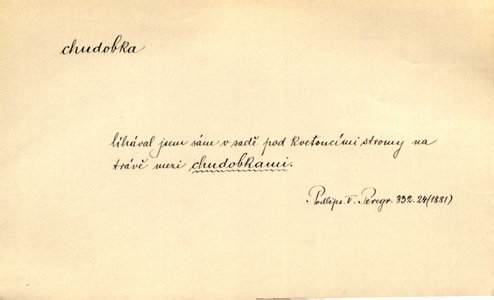 chudobka
líhával jsem sám v sadě pod kvetoucími stromy na
trávě mezi chudobkami.
Podlips. V. Peregr. 332. 24 (1881)